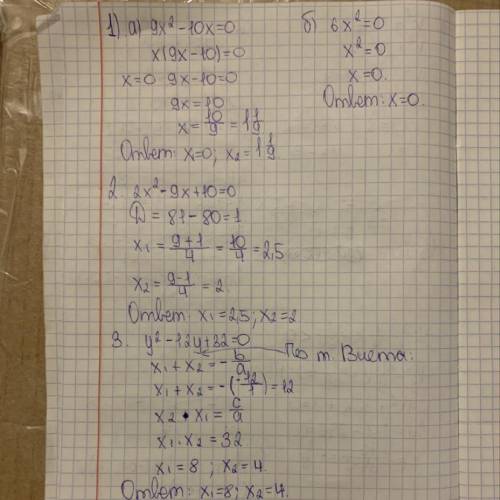 1) а) 9x² - 10x = 0
x(9x - 10) = 0
x = 0 9x - 10 = 0
9x = 10
x = 10/9 = 1 1/9
Ответ: x = 0; x₂ = 1 1/9
б) 6x² = 0
x² = 0
x = 0.
Ответ: x = 0.
2. 2x² - 9x + 10 = 0
D = 81 - 80 = 1
x₁ = (9+1)/4 = 10/4 = 2,5
x₂ = (9-1)/4 = 2
Ответ: x₁ = 2,5; x₂ = 2
3. y² - 12y + 32 = 0
По т. Виета:
x₁ + x₂ = -b/a
x₁ + x₂ = -(-12/1) = 12
x₂ · x₁ = c/a
x₁ · x₂ = 32
x₁ = 8; x₂ = 4.
Ответ: x₁ = 8; x₂ = 4.